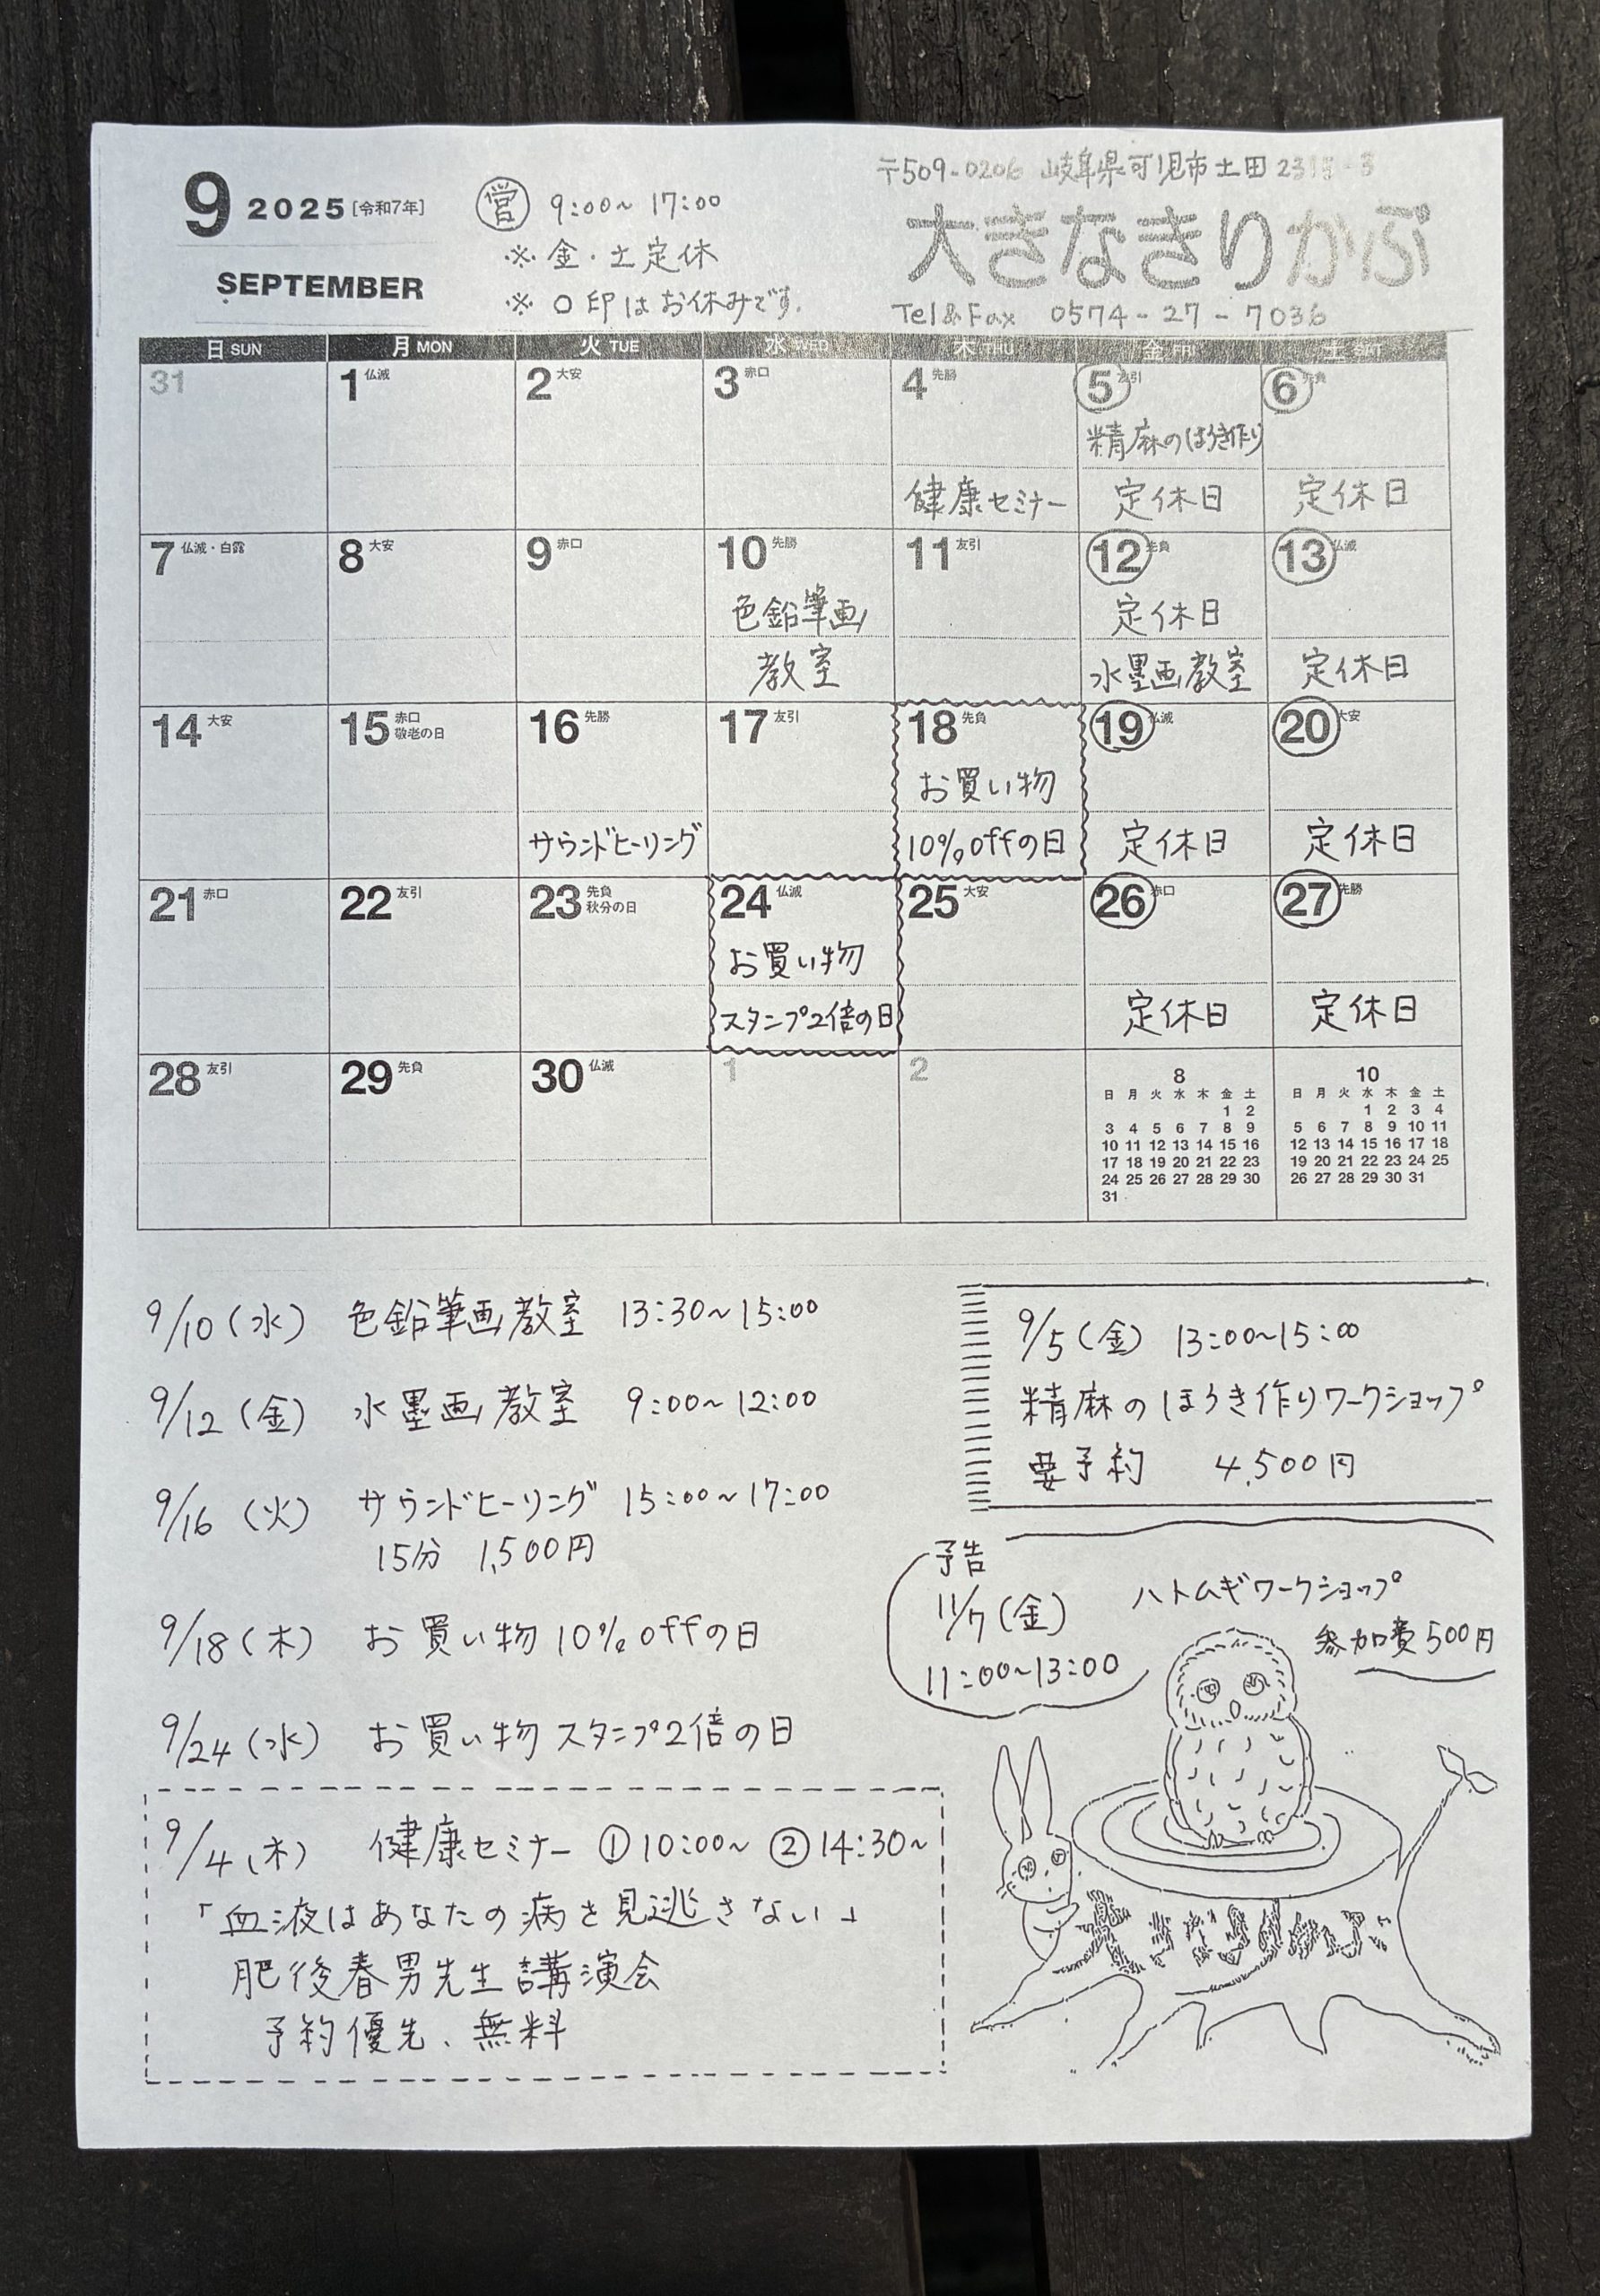 9 2025 [令和7年]
SEPTEMBER
営 9:00~17:00
※ 金・土定休
※ ○印はお休みです.
〒509-0206 岐阜県可児市土田
大きなきりかぶ
Tel&Fax 0574-27-7036
日 SUN 月 MON 火 TUE 水 WED 木 THU 金 FRI 土 SAT
31 1 仏滅 2 大安 3 赤口 4 先勝 5 友引 6 先負
精麻のほうき作り
健康セミナー 定休日 定休日
7 仏滅・白露 8 大安 9 赤口 10 先勝 11 友引 12 先負 13 仏滅
色鉛筆画 定休日
教室 水墨画教室 定休日
14 大安 15 赤口 16 先勝 17 友引 18 先負 19 仏滅 20 大安
敬老の日
お買い物
サウンドヒーリング 10%offの日 定休日 定休日
21 赤口 22 友引 23 先負 24 仏滅 25 大安 26 赤口 27 先勝
秋分の日
お買い物
スタンプ2倍の日 定休日 定休日
28 友引 29 先負 30 仏滅 1 2
8
日 月 火 水 木 金 土
1 2
3 4 5 6 7 8 9
10 11 12 13 14 15 16
17 18 19 20 21 22 23
24 25 26 27 28 29 30
31
10
日 月 火 水 木 金 土
1 2 3 4
5 6 7 8 9 10 11
12 13 14 15 16 17 18
19 20 21 22 23 24 25
26 27 28 29 30 31
9/10(水) 色鉛筆画教室 13:30~15:00
9/12(金) 水墨画教室 9:00~12:00
9/16(火) サウンドヒーリング 15:00~17:00
15分 1,500円
9/18(木) お買い物10%offの日
9/24(水) お買い物スタンプ2倍の日
9/4(木) 健康セミナー ①10:00~ ②14:30~
「血液はあなたの病を見逃さない」
肥後春男先生講演会
予約優先、無料
9/5(金) 13:00~15:00
精麻のほうき作りワークショップ
要予約 4,500円
予告
11/7(金) ハトムギワークショップ
11:00~13:00 参加費500円
大きなきりかぶ